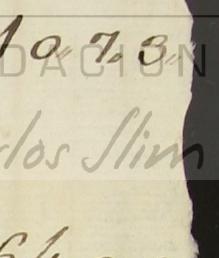 10"7.3"
DACIÓN
los Slim